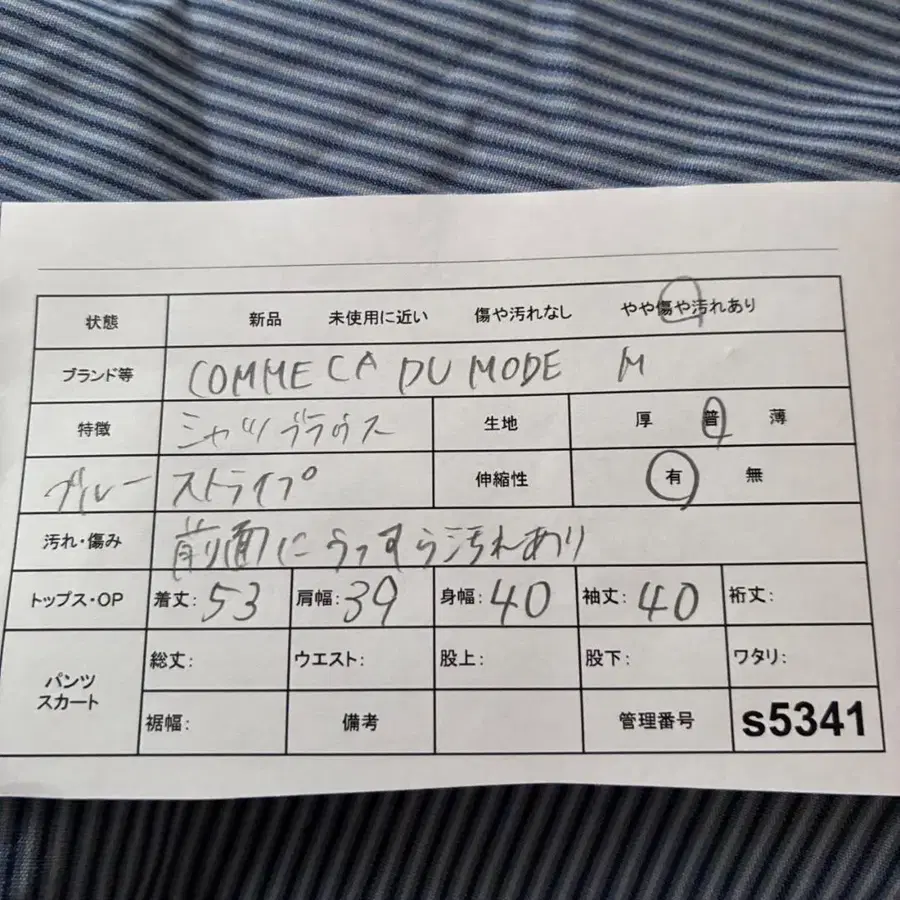 状態 新品 未使用に近い 傷や汚れなし やや傷や汚れあり
ブランド等 COMME CA DU MODE M
特徴 シャツブラウス 生地 厚 普 薄
ブルー ストライプ 伸縮性 有 無
汚れ・傷み 前面にうっすら汚れあり
トップス・OP 着丈: 53 肩幅: 39 身幅: 40 袖丈: 40 裄丈:
パンツ スカート 総丈: ウエスト: 股上: 股下: ワタリ:
裾幅: 備考 管理番号 s5341